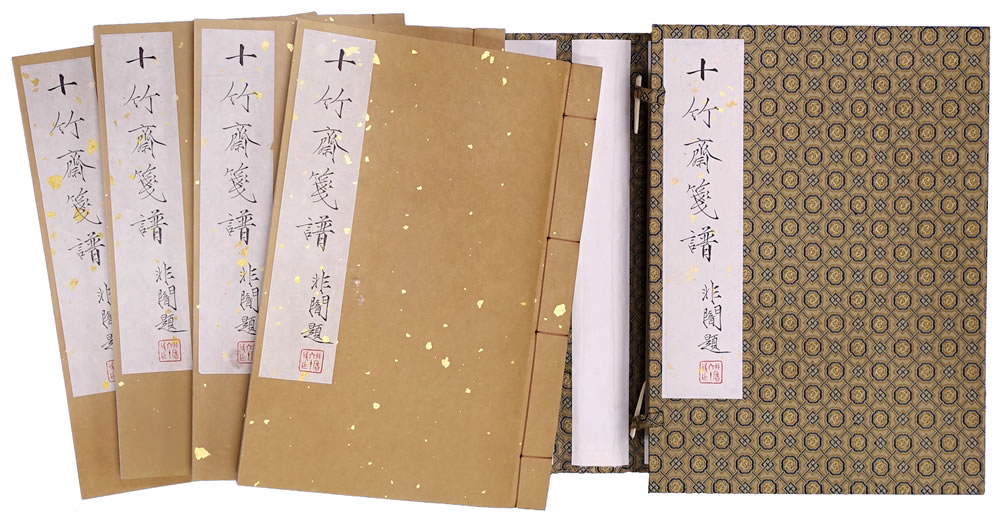 十竹齋箋譜
十竹齋箋譜 非闇題
十竹齋箋譜 非闇題
十竹齋箋譜 非闇題
十竹齋箋譜 非闇題